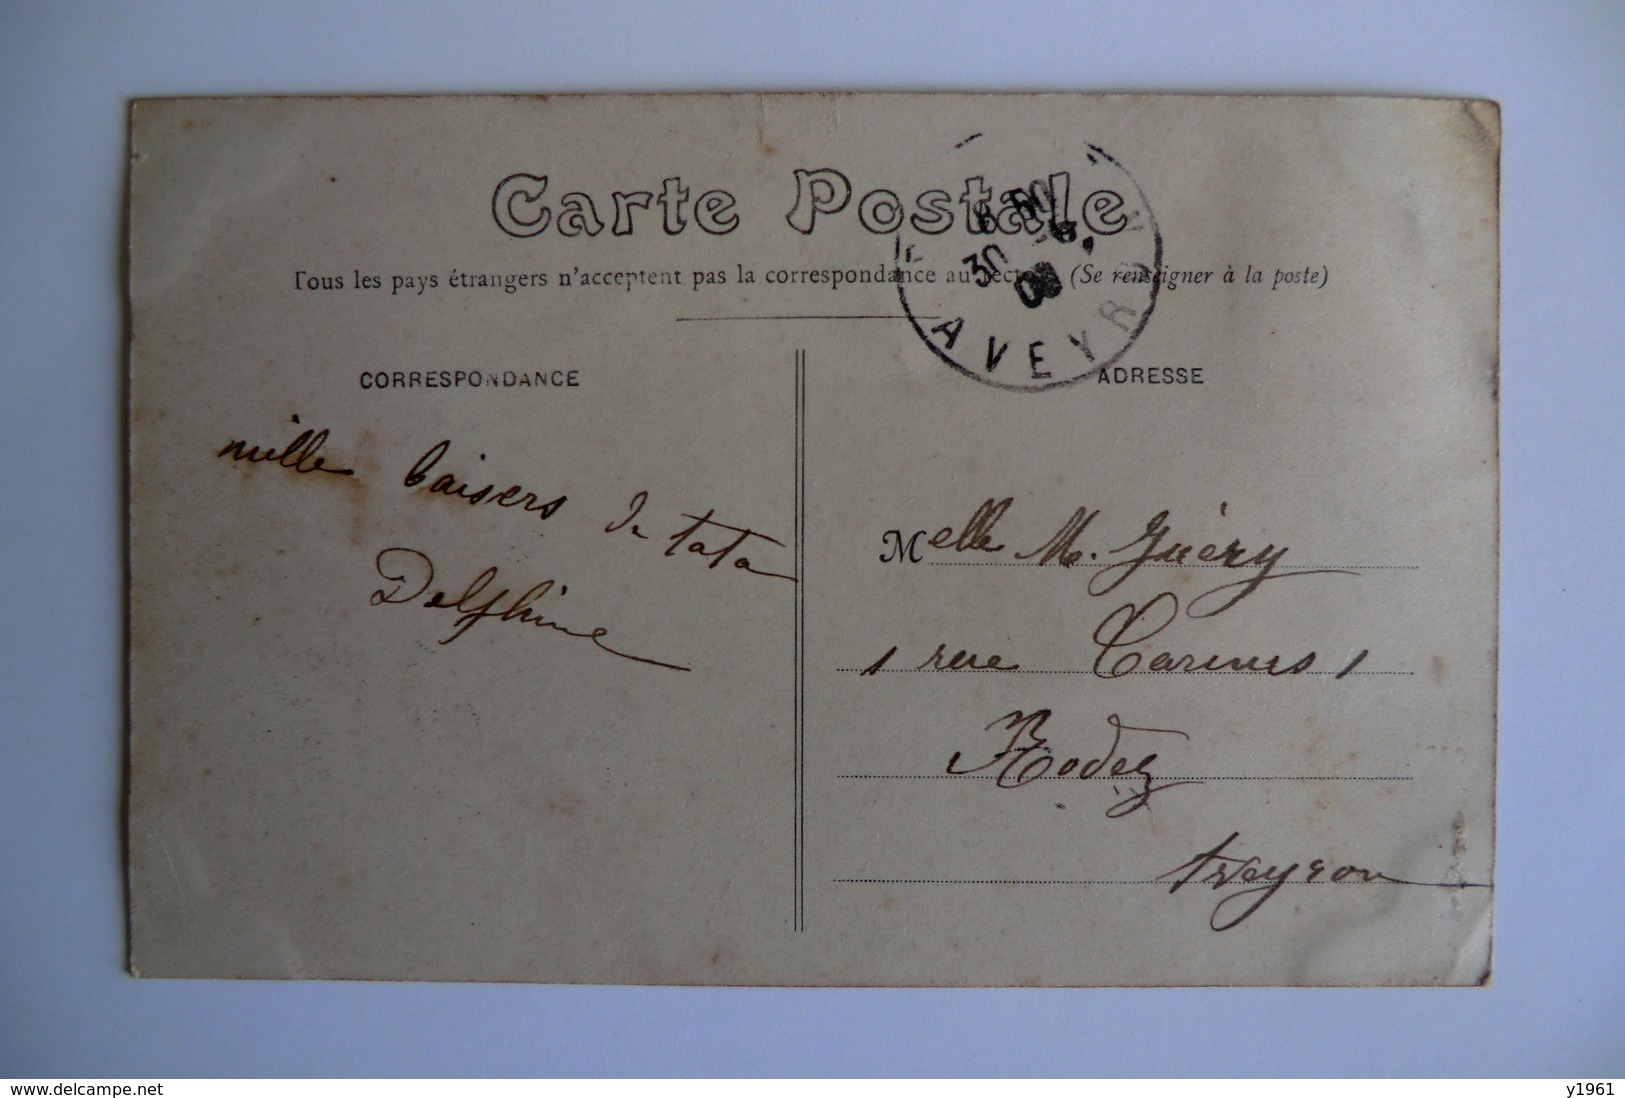 Carte Postale
Tous les pays étrangers n'acceptent pas la correspondance au recto. (Se renseigner à la poste)
30
AVEYRON
CORRESPONDANCE
ADRESSE
mille baisers de tata
Delphine
Melle M. Guéry
1 rue Carmes 1
Rodez
Aveyron
www.delcampe.net
y1961